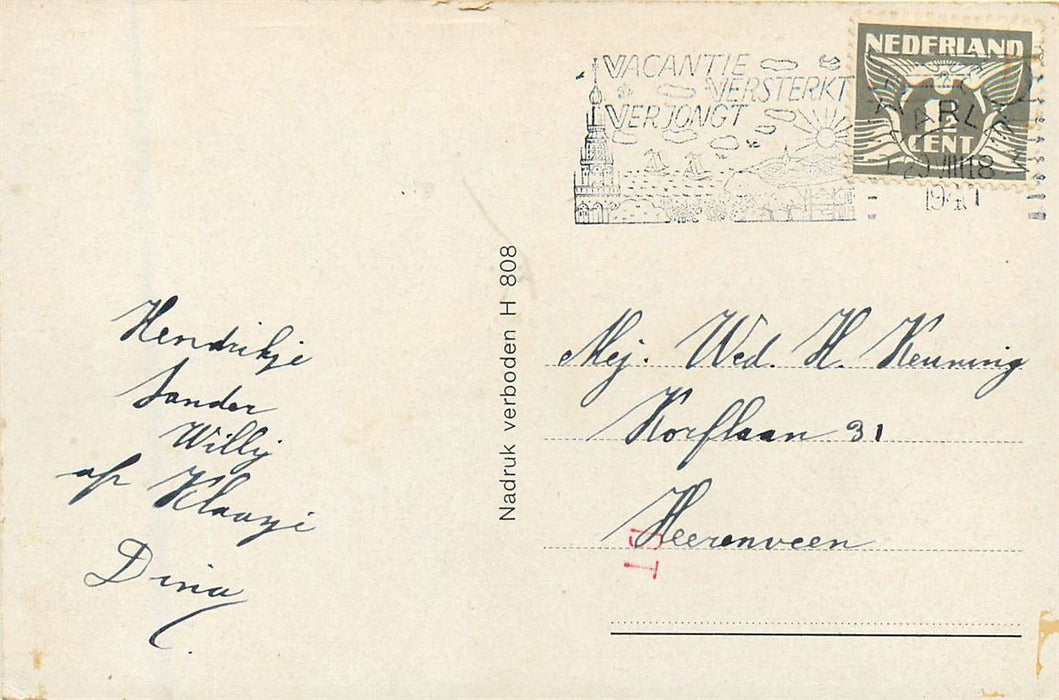 VACANTIE
VERSTERKT
VERJONGT
NEDERLAND
1½
CENT
VIII 18
1940
Nadruk verboden H 808
Hendrikje
Sander
Willy
op Klaasje
Dina
Mej. Wed. H. Keuning
Korflaan 31
Heerenveen